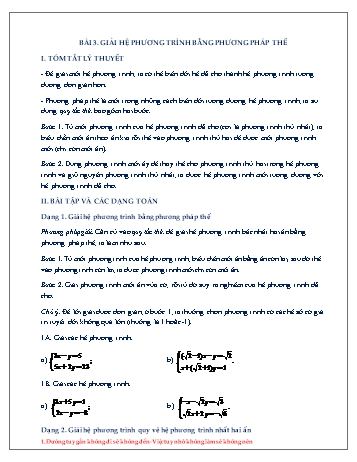 BÀI 3. GIẢI HỆ PHƯƠNG TRÌNH BẰNG PHƯƠNG PHÁP THẾ
I. TÓM TẮT LÝ THUYẾT
- Để giải một hệ phương trình, ta có thể biến đổi hệ đã cho thành hệ phương trình tương
đương đơn giản hơn.
- Phương pháp thế là một trong những cách biến đổi tương đương hệ phương trình, ta sử
dụng quy tắc thế bao gồm hai bước.
Bước 1. Từ một phương trình của hệ phương trình đã cho (coi là phương trình thứ nhất), ta
biểu diễn một ẩn theo ẩn kia rồi thế vào phương trình thứ hai để được một phương trình
mới (chỉ còn một ẩn).
Bước 2. Dùng phương trình mới ấy để thay thế cho phương trình thứ hai trong hệ phương
trình và giữ nguyên phương trình thứ nhất, ta được hệ phương trình mới tương đương với
hệ phương trình đã cho.
II. BÀI TẬP VÀ CÁC DẠNG TOÁN
Dạng 1. Giải hệ phương trình bằng phương pháp thế
Phương pháp giải: Căn cứ vào quy tắc thế, để giải hệ phương trình bậc nhất hai ẩn bằng
phương pháp thế, ta làm như sau:
Bước 1. Từ một phương trình của hệ phương trình, biểu diễn một ẩn bằng ẩn còn lại, sau đó thế
vào phương trình còn lại, ta được phương trình mới chỉ còn một ẩn.
Bước 2. Giải phương trình một ẩn vừa có, rồi từ đó suy ra nghiệm của hệ phương trình đã
cho.
Chú ý: Để lời giải được đơn giản, ở bước 1, ta thường chọn phương trình có các hệ số có giá
trị tuyệt đối không quá lớn (thường là 1 hoặc -1).
1A. Giải các hệ phương trình:
a)
b)
1B. Giải các hệ phương trình:
a)
b)
Dạng 2. Giải hệ phương trình quy về hệ phương trình bậc nhất hai ẩn
1.Đường tuy gần không đi sẽ không đến-Việc tuy nhỏ không làm sẽ không nên